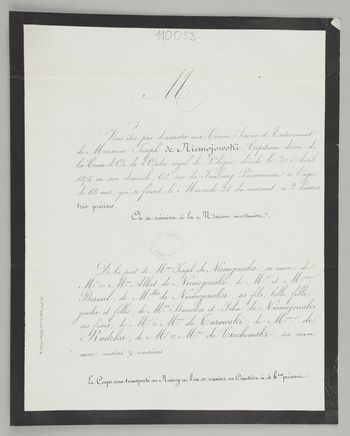 110033
M
Vous êtes prié d'assister aux Convoi, Service et Enterrement
de Monsieur Joseph de Niemojowski Capitaine décoré de
la Croix d'Or de l'Ordre royal de Pologne décédé le 20 Avril
1875 en son domicile 62 rue du Faubourg Poissonnière à l'âge
de 68 ans, qui se feront le Mercredi 21 du courant, à 2 heures
très précises.
On se réunira à la Maison mortuaire.
De la part de Mme Joseph de Niemojowska, sa veuve; de
Mr & Mme Albert de Niemojowski, de Mr et Mme
de Melle de Niemojowska, ses fils, belle fille,
gendre et filles, de Mrs Stanislas et Félix de Niemojowski,
ses frères, de Mr & Mme de Turowski, de Mme de
Rudzka, de Mr & Mme de Trechomski, ses
cousins & cousines
Le Corps sera transporté au Raincy où l'on se réunira au Cimetière à 4 h. précises